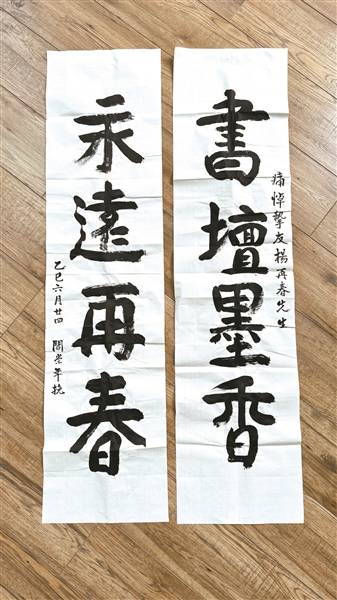 痛悼摯友楊再春先生
書壇墨香
永遠再春
乙巳六月廿四 閻崇年挽